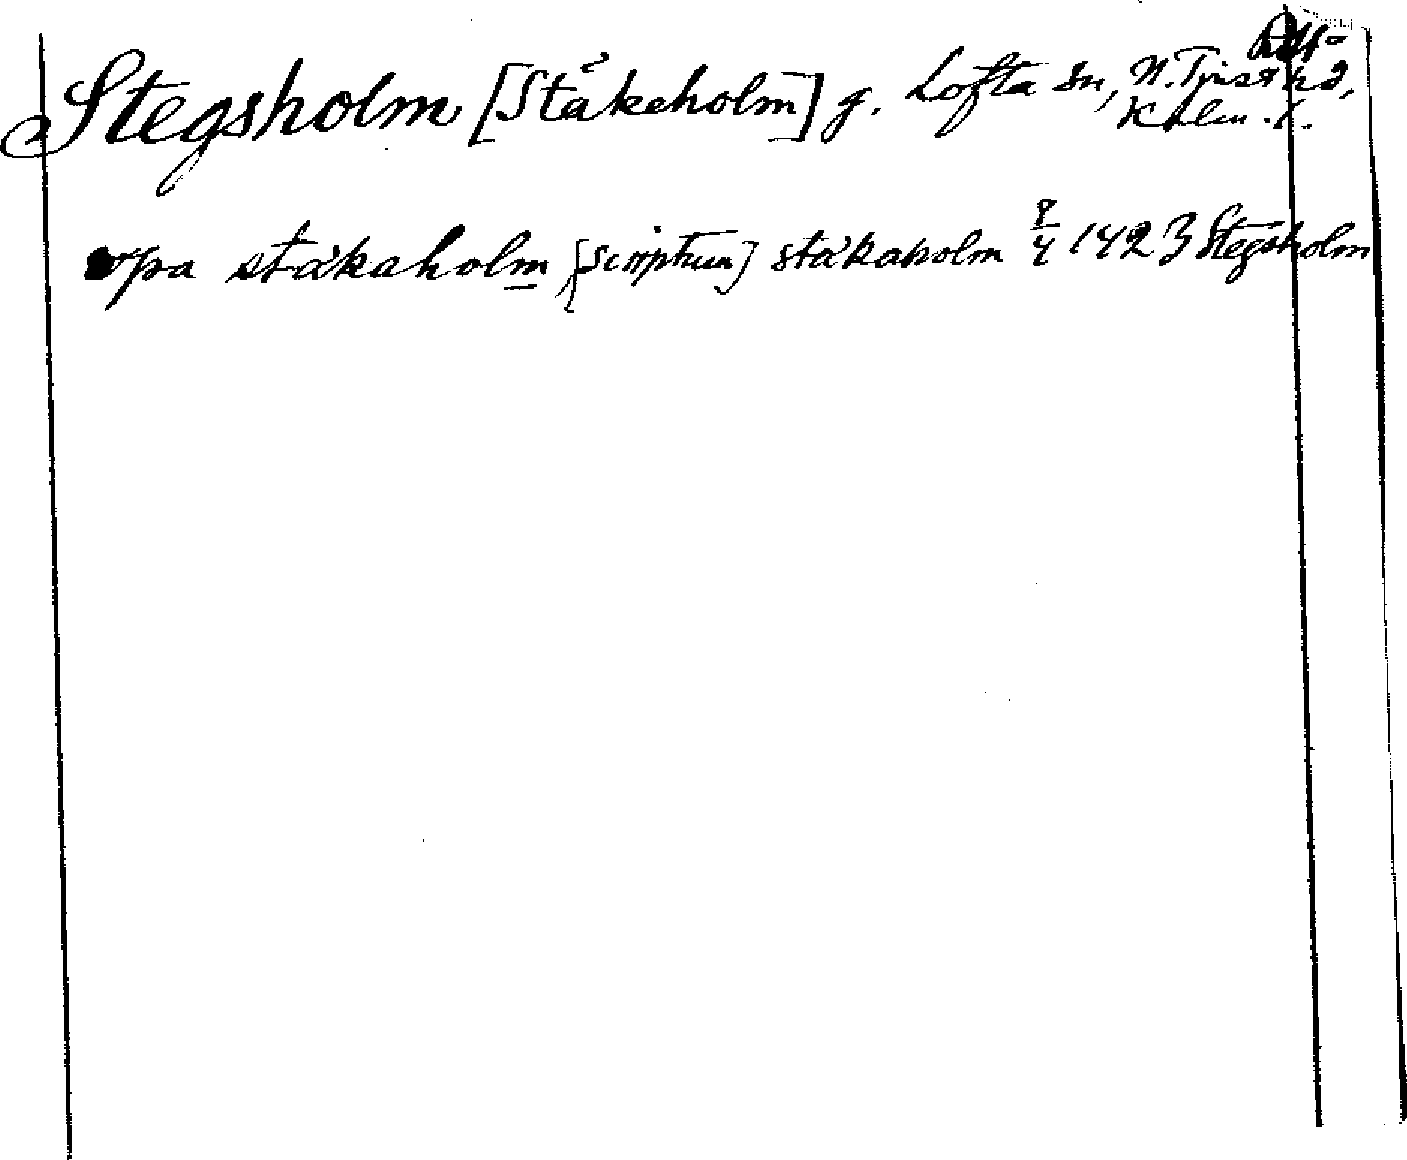 Stegsholm [Ståkeholm] g. Lofta sn, N. Tjust hd,
Kalm. l.
vpa stakaholm [scriptum] stakaholm 8/4 1423 Stegsholm